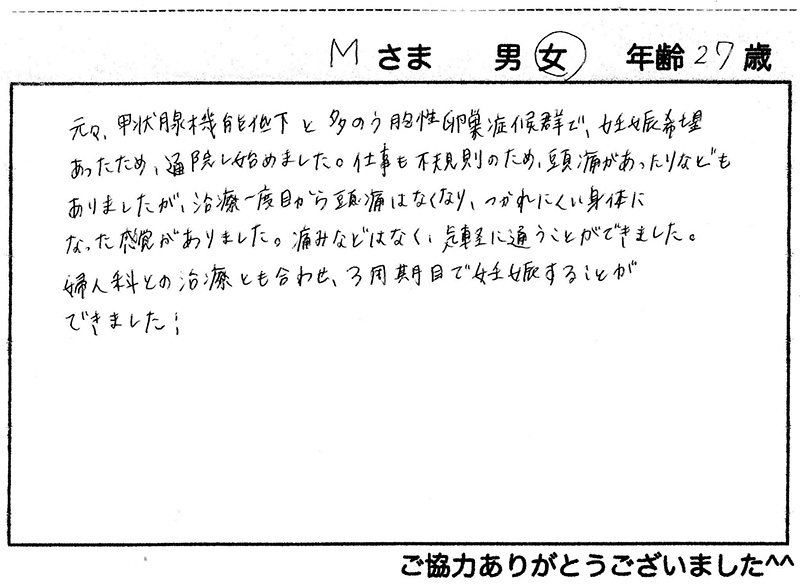 Mさま 男 女 年齢27歳
元々、甲状腺機能低下と多のう胞性卵巣症候群で、妊娠希望
あったため、通院し始めました。仕事も不規則のため、頭痛があったりなども
ありましたが、治療一度目から頭痛はなくなり、つかれにくい身体に
なった感覚がありました。痛みなどはなく、気軽に通うことができました。
婦人科との治療とも合わせ、3周期目で妊娠することが
できました!
ご協力ありがとうございました^^